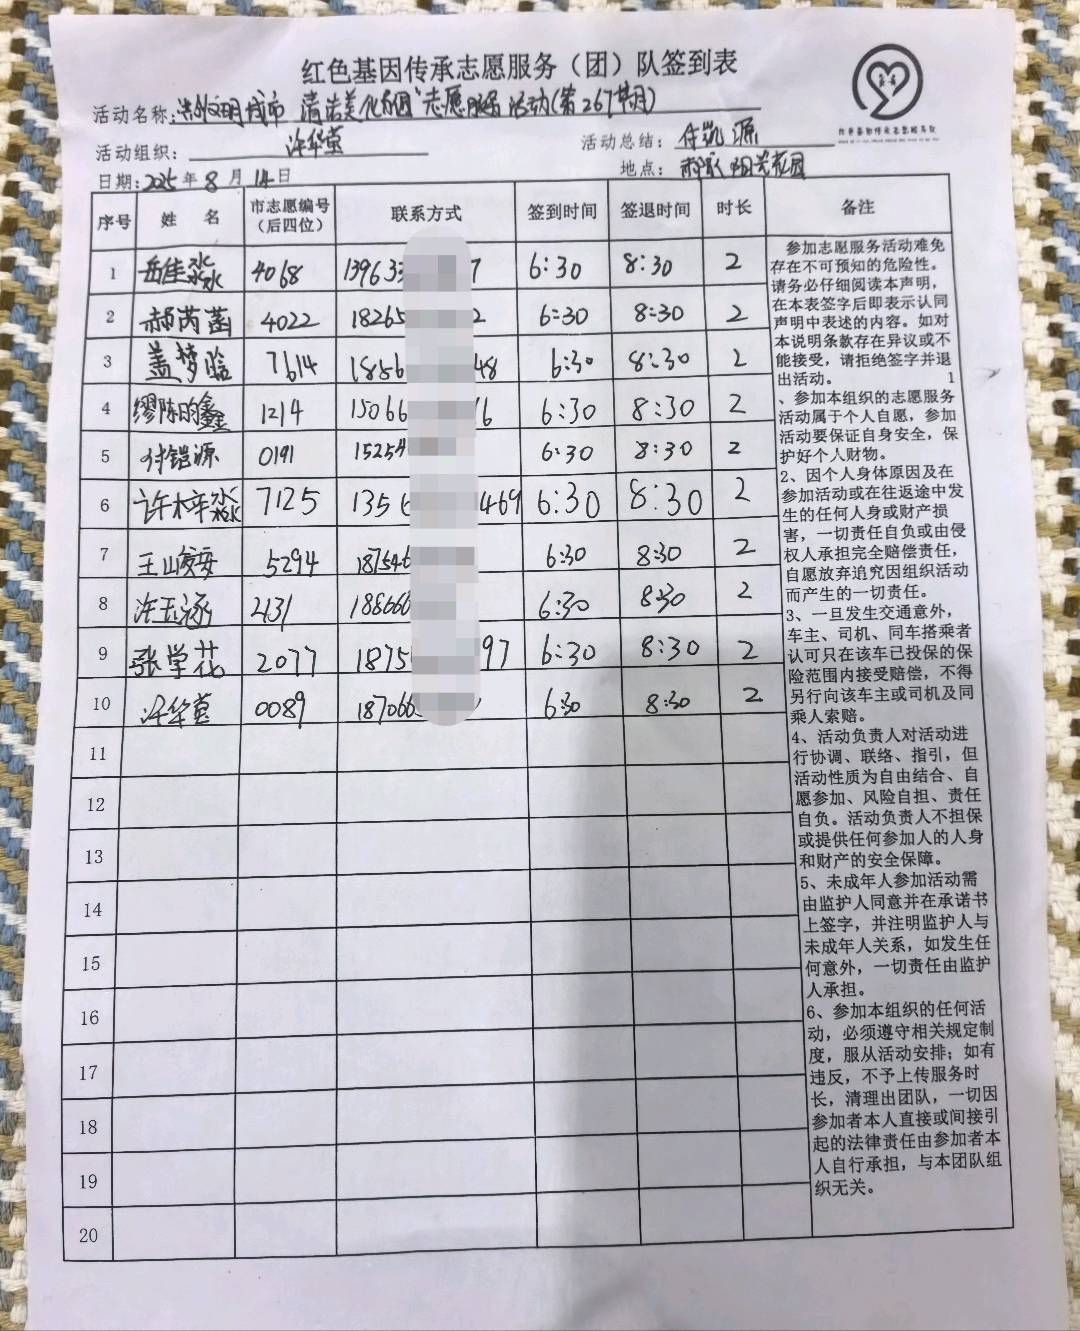 红色基因传承志愿服务（团）队签到表
活动名称：共创文明城市 清洁美化家园"志愿服务活动(第267期)
活动组织：许华莹 活动总结：付凯源
日期：2025年8月14日 地点：郝家阳光花园
序号 姓 名 市志愿编号（后四位） 联系方式 签到时间 签退时间 时长 备注
1 岳佳淼 4068 13963 7 6:30 8:30 2
2 郝芮菡 4022 18265 2 6:30 8:30 2
3 盖梦晗 7614 1856 48 6:30 8:30 2
4 缪陈昀鑫 1214 15066 6 6:30 8:30 2
5 付铠源 0191 15254 6:30 8:30 2
6 许梓淼 7125 1356 469 6:30 8:30 2
7 王山 5294 187546 6:30 8:30 2
8 汪玉涵 2131 188666 6:30 8:30 2
9 张学花 2077 1875 97 6:30 8:30 2
10 许华莹 0089 187066 6:30 8:30 2
11
12
13
14
15
16
17
18
19
20
参加志愿服务活动难免
存在不可预知的危险性。
请务必仔细阅读本声明，
在本表签字后即表示认同
声明中表述的内容。如对
本说明条款存在异议或不
能接受，请拒绝签字并退
出活动。 1
、参加本组织的志愿服务
活动属于个人自愿，参加
活动要保证自身安全，保
护好个人财物。
2、因个人身体原因及在
参加活动或在往返途中发
生的任何人身或财产损
害，一切责任自负或由侵
权人承担完全赔偿责任，
自愿放弃追究因组织活动
而产生的一切责任。
3、一旦发生交通意外，
车主、司机、同车搭乘者
认可只在该车已投保的保
险范围内接受赔偿，不得
另行向该车主或司机及同
乘人索赔。
4、活动负责人对活动进
行协调、联络、指引，但
活动性质为自由结合、自
愿参加、风险自担、责任
自负。活动负责人不担保
或提供任何参加人的人身
和财产的安全保障。
5、未成年人参加活动需
由监护人同意并在承诺书
上签字，并注明监护人与
未成年人关系，如发生任
何意外，一切责任由监护
人承担。
6、参加本组织的任何活
动，必须遵守相关规定制
度，服从活动安排；如有
违反，不予上传服务时
长，清理出团队，一切因
参加者本人直接或间接引
起的法律责任由参加者本
人自行承担，与本团队组
织无关。